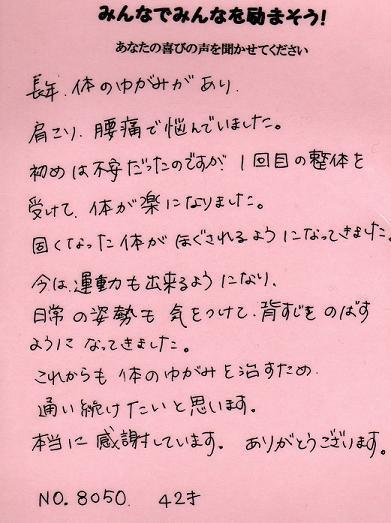 みんなでみんなを励まそう!
あなたの喜びの声を聞かせてください
長年、体のゆがみがあり、
肩こり、腰痛で悩んでいました。
初めは不安だったのですが、1回目の整体を
受けて、体が楽になりました。
固くなった体がほぐされるようになってきました。
今は、運動も出来るようになり、
日常の姿勢も気をつけて、背すじをのばす
ようになってきました。
これからも体のゆがみを治すため、
通い続けたいと思います。
本当に感謝しています。ありがとうございます。
NO.8050. 42才